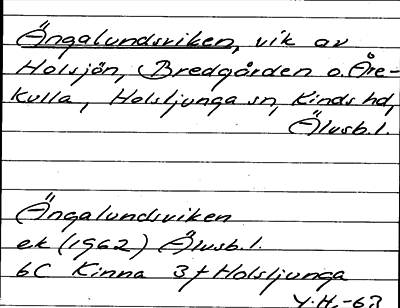 Ängalundsviken, vik av
Holsjön, Bredgården o. Åre-
kulla, Holsljunga sn, Kinds hd,
Älvsb.l.
Ängalundsviken
ek (1962) Älvsb.l.
6C Kinna 3f Holsljunga
Y.H.-63